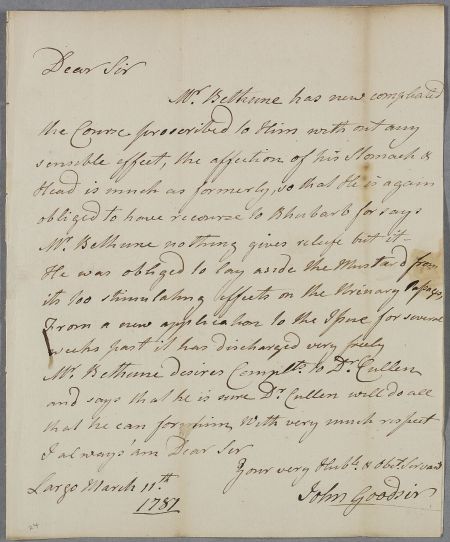 Dear Sir
Mr. Bethune has now compleated
the Course prescribed to Him with out any
sensible effect, the affection of his Stomach &
Head is much as formerly, so that He is again
obliged to have recourse to Rhubarb for says
Mr. Bethune nothing gives releife but it –
He was obliged to lay aside the Mustard from
its too stimulating effects on the Urinary Passages,
From a new application to the Issue for several
weeks past it has discharged very freely
Mr. Bethune desires Complts. to Dr. Cullen
and says that he is sure Dr. Cullen will do all
that he can for him, With very much respect
I always am Dear Sir
Your very Hubl. & Obt. Servant
Largo March 11th.
John Goodsir
1781
24